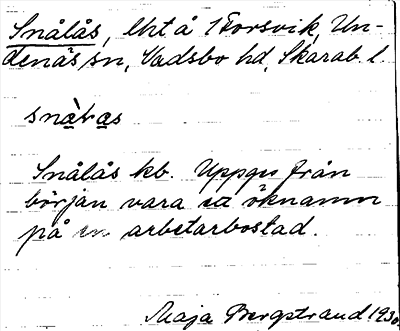 Snålås, lht å 1 Forsvik, Un-
denäs sn, Vadsbo hd, Skarab. l.
Snålås kb. Uppges från
början vara ett öknamn
på en arbetarbostad.
Maja Bergstrand 1930